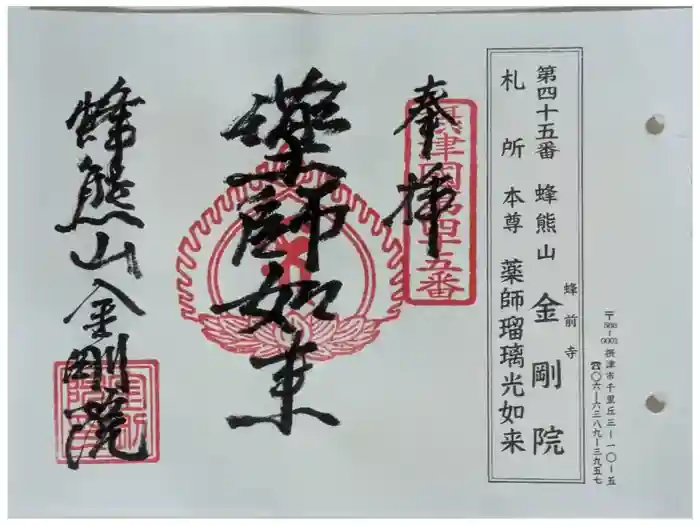 〒566-0001 摂津市千里丘三ー一〇ー五
☎〇六ー六三八九ー三九五七
蜂前寺
第四十五番 蜂熊山 金剛院
札所本尊 薬師瑠璃光如来
奉拝
摂津国第四十五番
薬師如来
蜂熊山金剛院